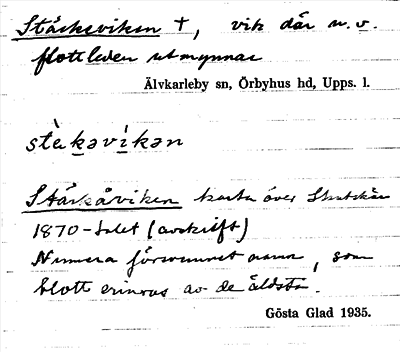 Stäckeviken †, vik där n. v.
flottleden utmynnar
Älvkarleby sn, Örbyhus hd, Upps. l.
stèkəvíkən
Stäckåviken karta över Skutskär
1870-talet (avskrift)
Numera försvunnet namn, som
blott erinras av de äldsta.
Gösta Glad 1935.